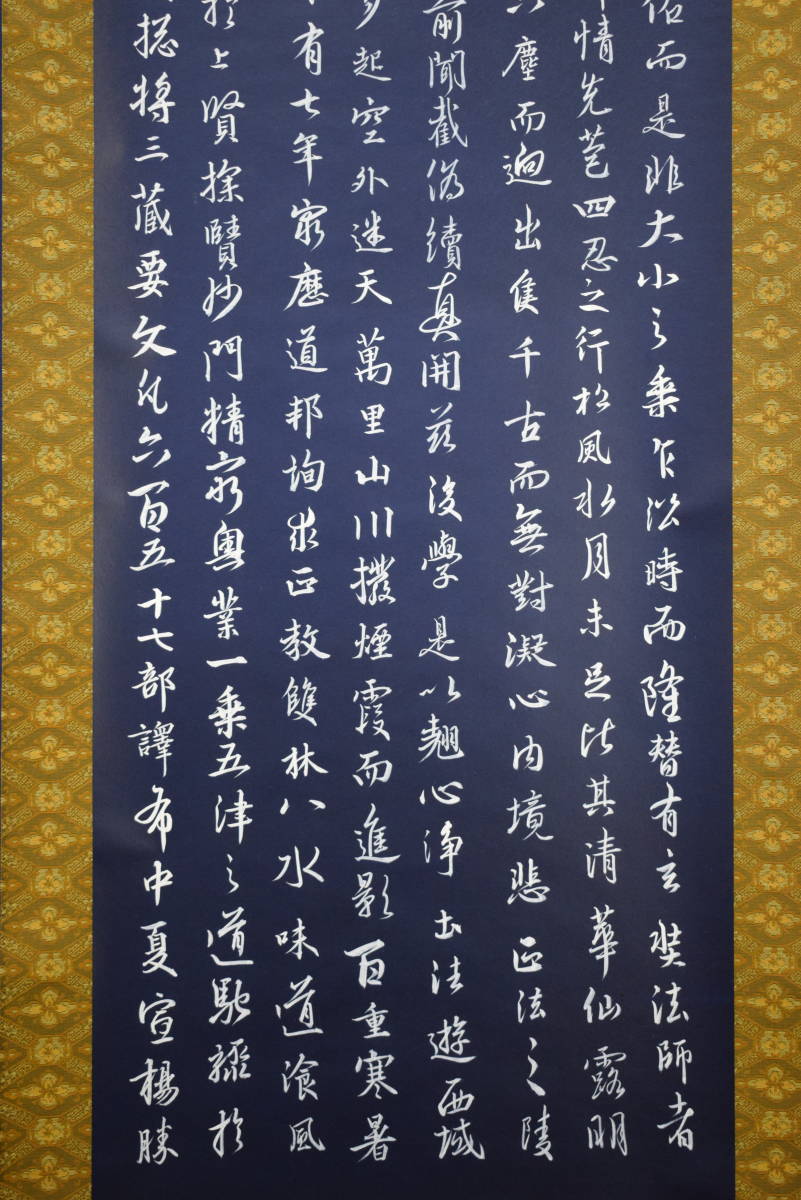 而是非大小之乘乍沿時而隆替有玄奘法師者
情先苞四忍之行松風水月未足比其清華仙露明
塵而迥出隻千古而無對凝心內境悲正法之陵
前聞截偽續真開茲後學是以翹心淨土法遊西域
起空外迷天萬里山川撥煙霞而進影百重寒暑
有七年窮歷道邦詢求正教雙林八水味道飡風
於上賢探賾妙門精窮奧業一乘五津之道馳驟於
揔將三藏要文凡六百五十七部譯布中夏宣楊勝